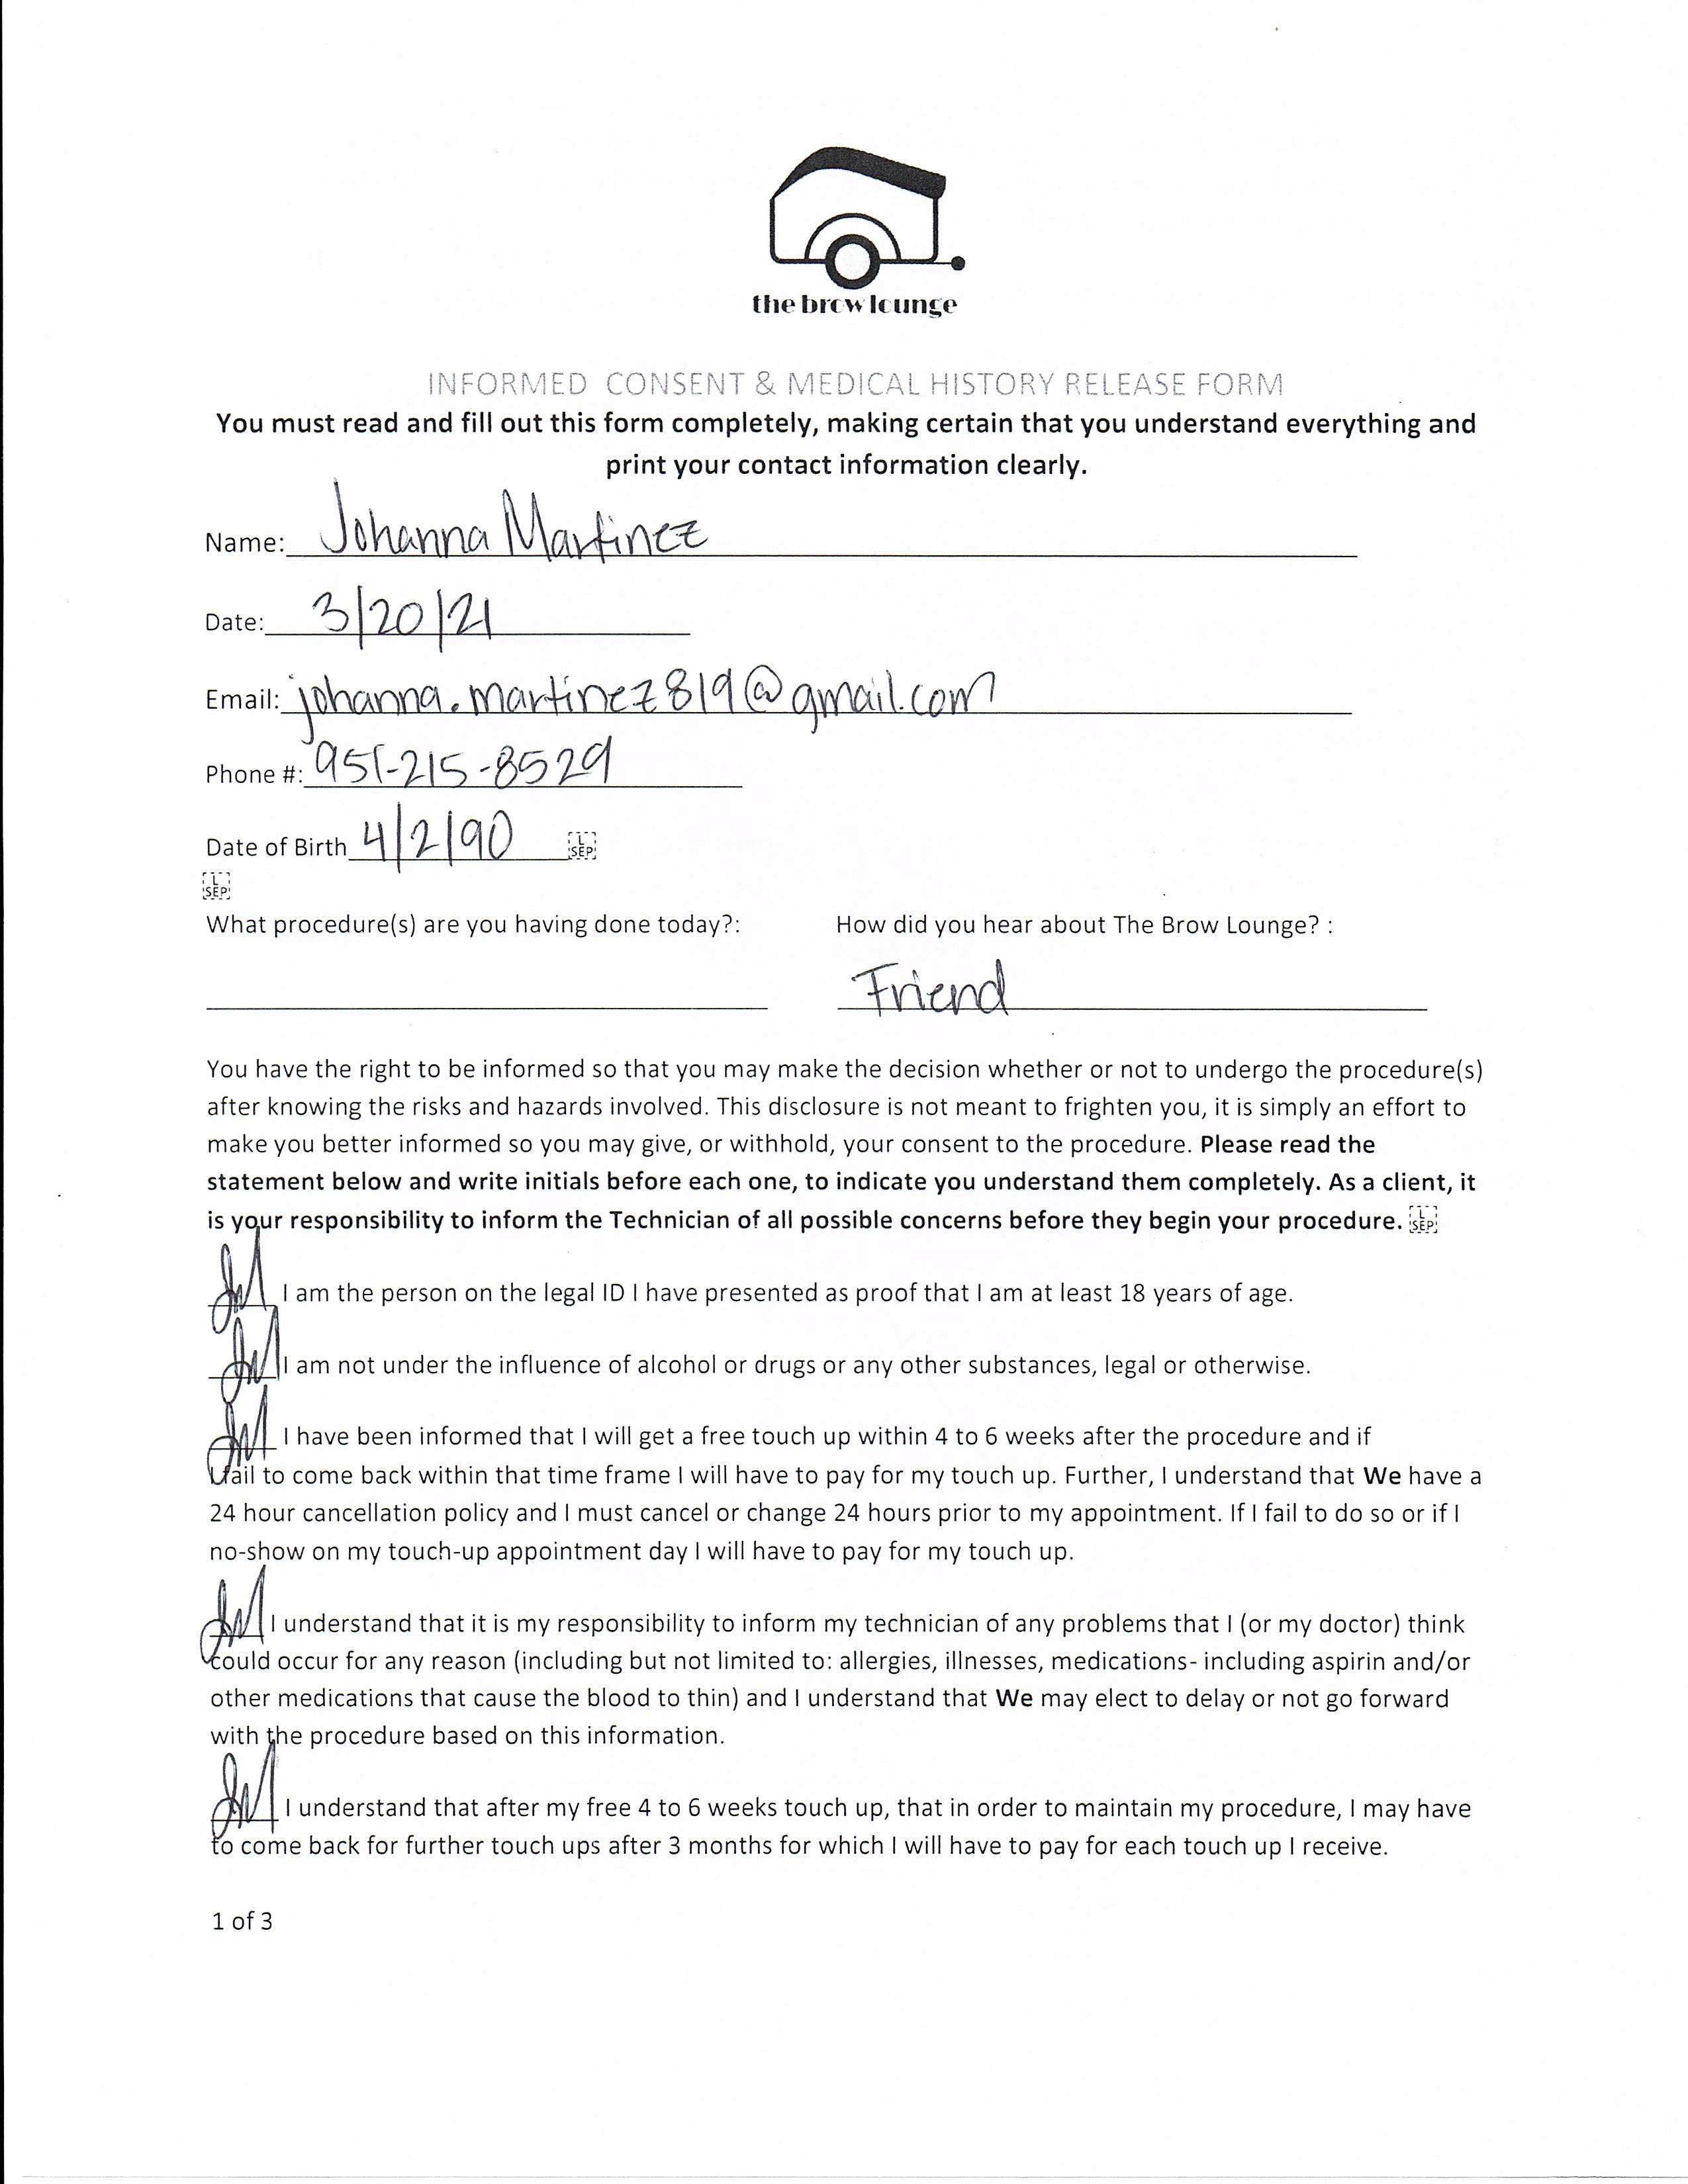 the brow lounge
INFORMED CONSENT & MEDICAL HISTORY RELEASE FORM
You must read and fill out this form completely, making certain that you understand everything and
print your contact information clearly.
Name: Johanna Martinez
Date: 3/20/21
Email: johanna.martinez819@gmail.com
Phone #: 951-215-8529
Date of Birth 4/2/90 L SEP
L SEP
What procedure(s) are you having done today?: How did you hear about The Brow Lounge? :
Friend
You have the right to be informed so that you may make the decision whether or not to undergo the procedure(s)
after knowing the risks and hazards involved. This disclosure is not meant to frighten you, it is simply an effort to
make you better informed so you may give, or withhold, your consent to the procedure. Please read the
statement below and write initials before each one, to indicate you understand them completely. As a client, it
is your responsibility to inform the Technician of all possible concerns before they begin your procedure. L SEP
JM I am the person on the legal ID I have presented as proof that I am at least 18 years of age.
JM I am not under the influence of alcohol or drugs or any other substances, legal or otherwise.
JM I have been informed that I will get a free touch up within 4 to 6 weeks after the procedure and if
I fail to come back within that time frame I will have to pay for my touch up. Further, I understand that We have a
24 hour cancellation policy and I must cancel or change 24 hours prior to my appointment. If I fail to do so or if I
no-show on my touch-up appointment day I will have to pay for my touch up.
JM I understand that it is my responsibility to inform my technician of any problems that I (or my doctor) think
could occur for any reason (including but not limited to: allergies, illnesses, medications- including aspirin and/or
other medications that cause the blood to thin) and I understand that We may elect to delay or not go forward
with the procedure based on this information.
JM I understand that after my free 4 to 6 weeks touch up, that in order to maintain my procedure, I may have
to come back for further touch ups after 3 months for which I will have to pay for each touch up I receive.
1 of 3